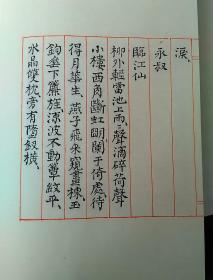 淚
永叔
臨江仙
柳外輕雷池上雨〻聲滴碎荷聲
小樓西角斷虹明闌干倚處待
得月華生 燕子飛來窺畫棟玉
鈎垂下簾旌涼波不動簟紋平
水晶雙枕旁有墮釵橫